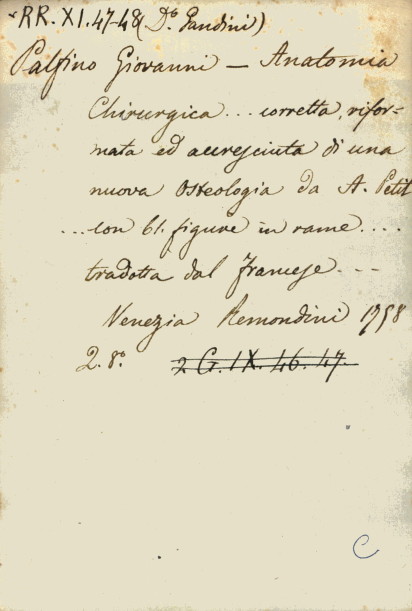 *RR. XI. 47-48 (D.º Gandini)
Palfino Giovanni — Anatomia
Chirurgica ... corretta, rifor-
mata ed accresciuta di una
nuova Osteologia da A. Petit
... con 61. figure in rame ....
tradotta dal francese ...
Venezia Remondini 1758
2. 8.º 2 G. IX. 46. 47.
C